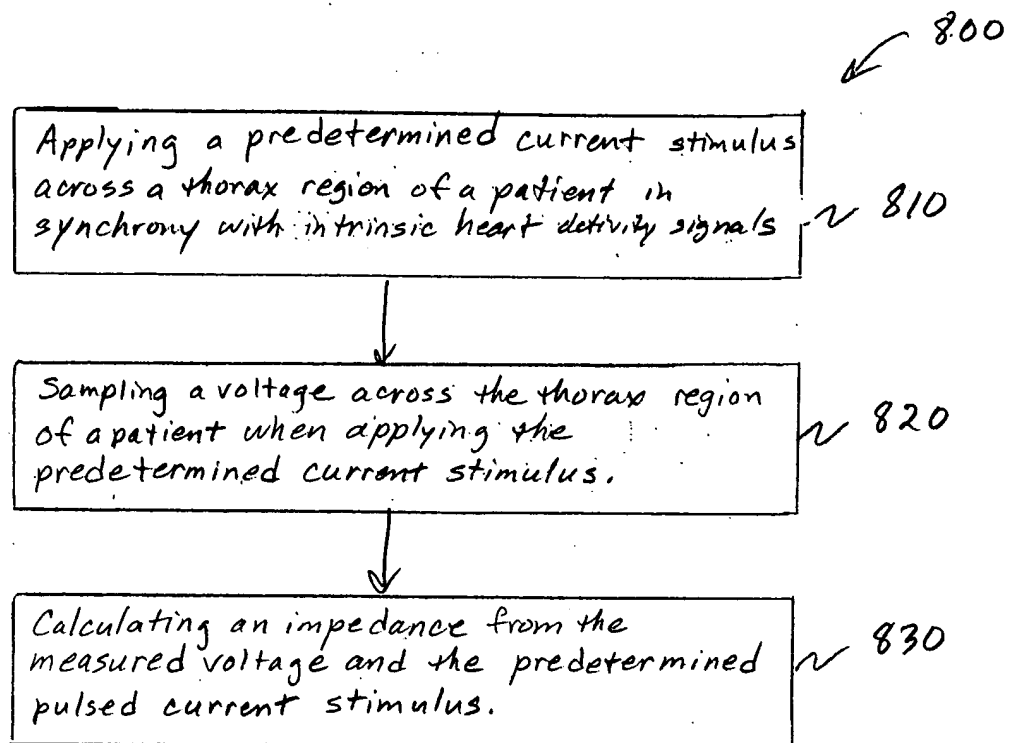 800
Applying a predetermined current stimulus
across a thorax region of a patient in
synchrony with intrinsic heart activity signals
810
Sampling a voltage across the thorax region
of a patient when applying the
predetermined current stimulus.
820
Calculating an impedance from the
measured voltage and the predetermined
pulsed current stimulus.
830